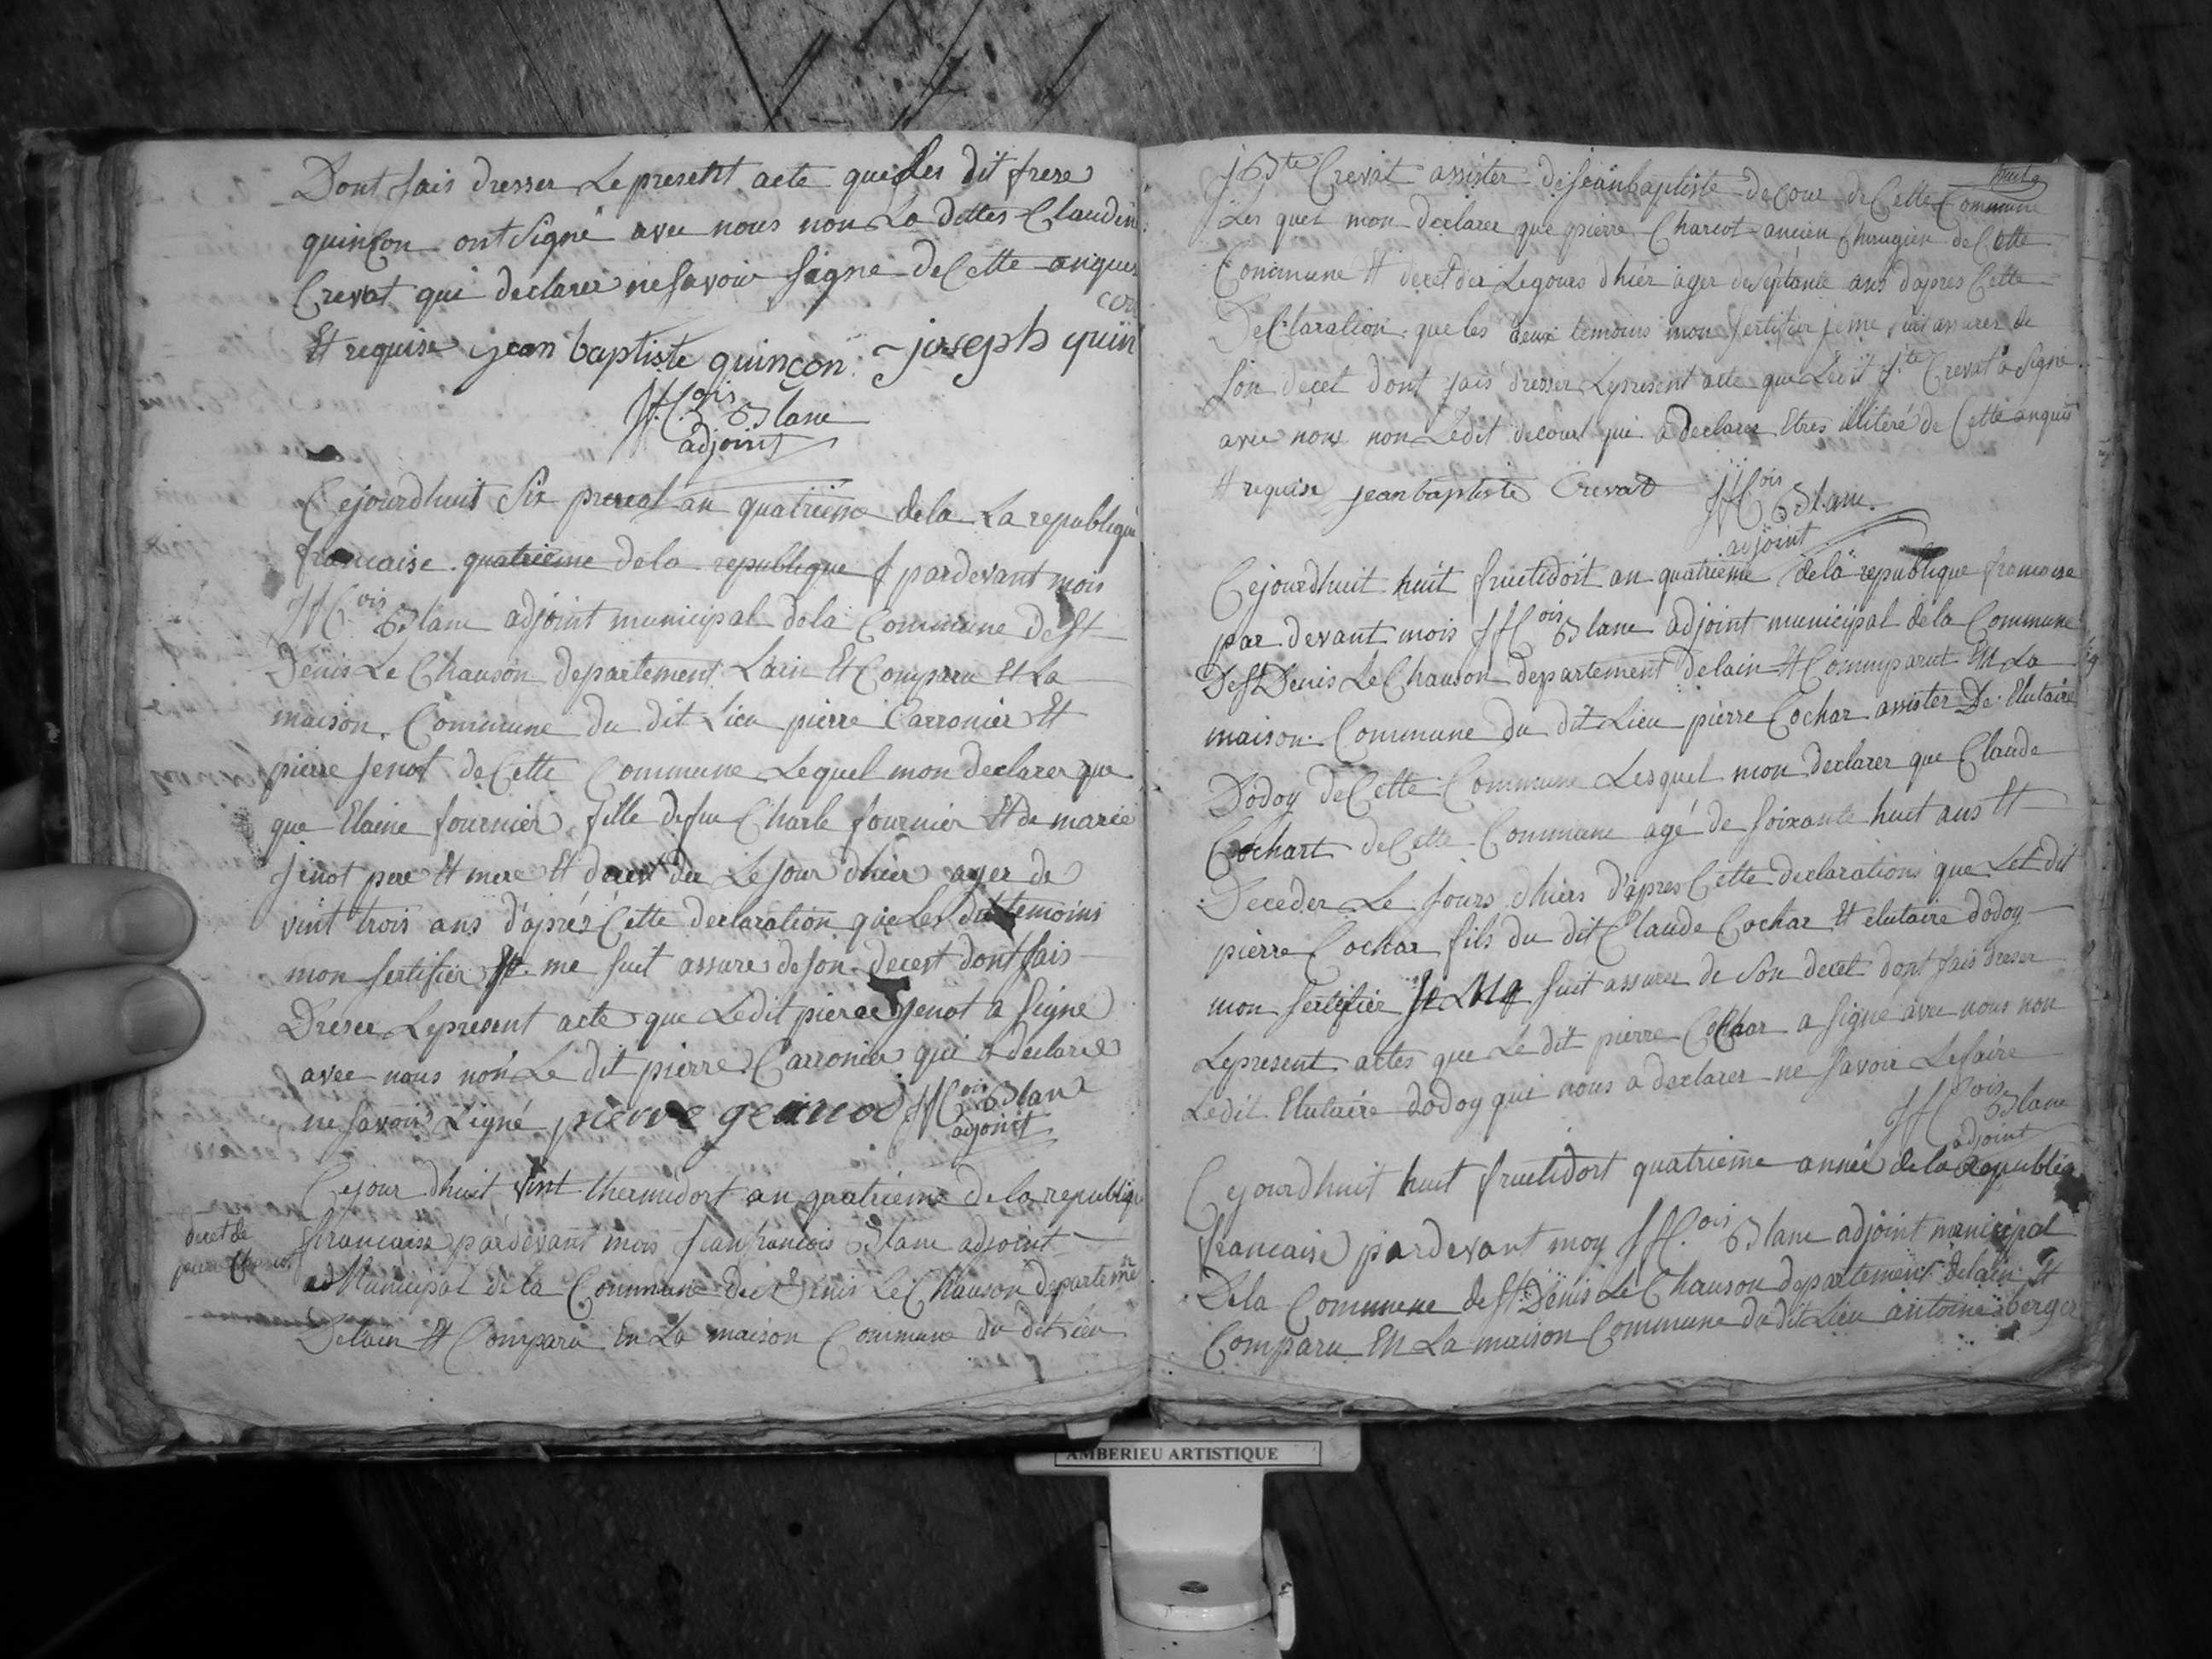 Dont fais dresser Le present acte que Les dit frere
quinçon ont Signé avec nous non La dittes Claudine
Crevat qui declarer ne Savoir Signe de Cette anques
Et requise jean baptiste quinçon joseph quin
con
JfCois Blanc
adjoint
Cejourdhuit Six prereal an quatrieme dela La republique
francaise quatrieme dela republique f pardevant mois
JfCois Blanc adjoint municipal dela Commune de St
Denis Le Chauson departement Lain Et Comparu Et La
maison Commune du dit Lieu pierre Carronier Et
pierre Jenot de Cette Commune Lequel mon declarer que
que Elaine fournier fille defeu Charle fournier Et de marie
Jenot pere Et mere Et decet der Le Jour dhier ager de
vint trois ans d'aprés Cette declaration que Les dit temoins
mon sertifier Je me suit assurer de son decest dont fais
Dreser Lepresent acte que Ledit pierre Jenot a Signe
avec nous non Le dit pierre Carronier qui a declarer
ne savoir Signé pierre geinod JfCois Blanc
adjoint
Cejour dhuit Vint thermidort an quatrieme de la republiq
francaise pardevant mois Jeanfrancois Blanc adjoint
decet de
pierre Charcot
Municipal de la Commune De St Denis Le Chauson departeme
Delain Et Comparu En La maison Commune du dit Lieu
huit
JBte Crevat assister de Jeanbaptiste decour de Cette Commune
Les quel mon declarer que pierre Charcot ancien Chirugien de Cette
Commune Et decet der Le jours dhier ager de septante ans dapres Cette
Declaration que les deux temoins mon sertifier jeme suit assurer de
son decet dont fais dresser Lepresent acte que Ledit Jte Crevat a Signe
avec nous non Ledit decourt qui a declarer Etres illiteré de Cette anquis
Et requise jean baptiste Crevat JfCois Blanc
adjoint
Cejourdhuit huit fructidort an quatrieme dela republique francaise
par devant mois JfCois Blanc adjoint municipal dela Commune
De St Denis Le Chauson departement Delain Et Commparut En La
maison Commune du dit Lieu pierre Cochar assister De Elutaire
Dodoy de Cette Commune Lesquel mon declarer que Claude
Cochart de Cette Commune agé de soixante huit ans Et
Deceder Le Jours dhiers d'apres Cette declarations que Let dit
pierre Cochar fils du dit Claude Cochar Et elutaire dodoy
mon sertifier Je Me suit assurer de Son decet dont fais dreser
Lepresent actes que Le dit pierre Cochar a signe avec nous non
Ledit Elutaire dodoy qui nous a declarer ne savoir Lefaire
JfCois Blanc
adjoint
Cejourdhuit huit fructidort quatrieme année de la Republiq
francaise pardevant moy JfCois Blanc adjoint municipal
Dela Commune de St Denis Le Chauson departement delain Et
Comparu En La maison Commune du dit Lieu antoine berger
AMBERIEU ARTISTIQUE